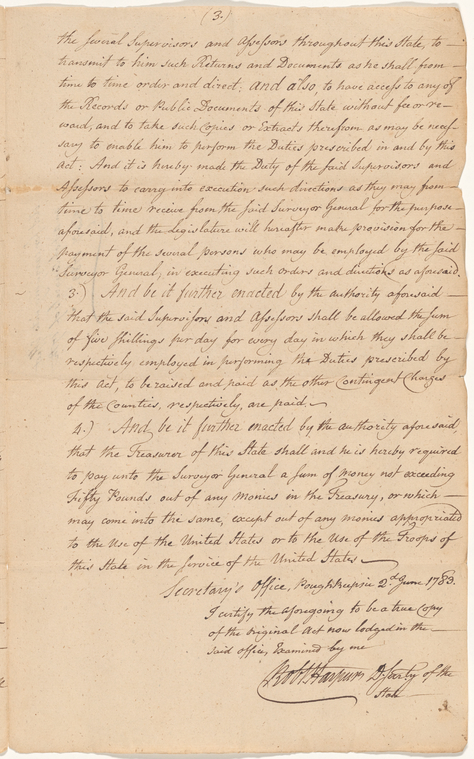 (3.)
the several Supervisors and Assessors throughout this State, to
transmit to him such Returns and Documents as he shall from
time to time order and direct; and also, to have access to any of
the Records or Public Documents of this State without fee or re-
ward, and to take such Copies or Extracts therefrom as may be neces-
sary to enable him to perform the Duties prescribed in and by this
act: And it is hereby made the Duty of the said Supervisors and
Assessors to carry into execution such directions as they may from
time to time receive from the said Surveyor General for the purpose
aforesaid, and the legislature will hereafter make provision for the
payment of the several persons who may be employed by the said
Surveyor General, in executing such orders and directions as aforesaid.
3.) And be it further enacted by the authority aforesaid
that the said Supervisors and Assessors shall be allowed the sum
of five shillings per day for every day in which they shall be
respectively employed in performing the Duties prescribed by
this act, to be raised and paid as the other Contingent Charges
of the Counties, respectively, are paid.
4.) And be it further enacted by the authority aforesaid,
that the Treasurer of this State shall and he is hereby required
to pay unto the Surveyor General a sum of money not exceeding
Fifty Pounds out of any monies in the Treasury, or which
may come into the same, except out of any monies appropriated
to the Use of the United States or to the Use of the Troops of
this State in the service of the United States
Secretary's Office, Poughkeepsie 2d June 1783.
I certify the aforegoing to be a true Copy
of the original Act now lodged in the
said office, Examined by me
Robt Harpur Dy Secrty of the
State